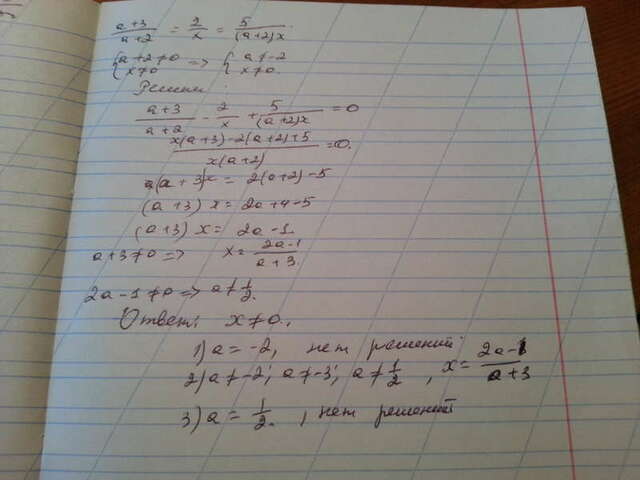 (a+3)/(a+2) = 2/x = 5/((a+2)x)
{a+2≠0 x≠0 => {a≠-2 x≠0.
Решим:
(a+3)/(a+2) - 2/x + 5/((a+2)x) = 0
(x(a+3)-2(a+2)+5)/(x(a+2)) = 0.
(a+3)x = 2(a+2)-5
(a+3)x = 2a+4-5
(a+3)x = 2a-1.
a+3≠0 => x = (2a-1)/(a+3).
2a-1≠0 => a≠1/2.
Ответ: x≠0.,
1) a = -2, нет решений
2) a≠-2; a≠-3; a≠1/2, x = (2a-1)/(a+3)
3) a = 1/2. , нет решений